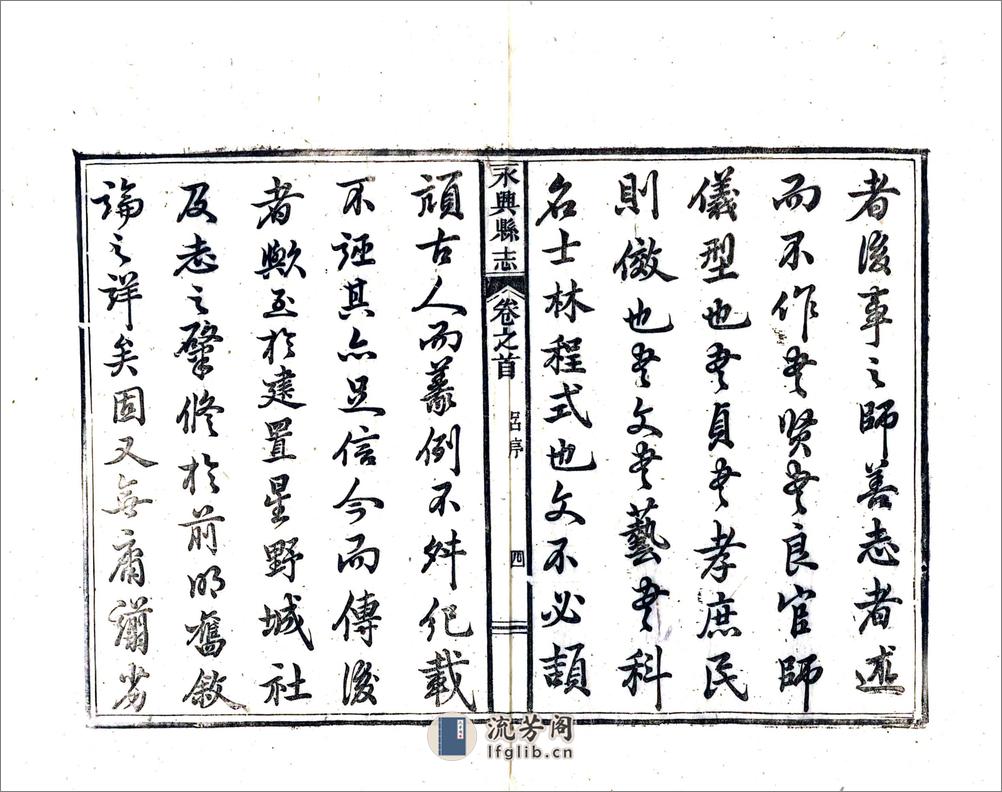 者後事之師善志者述
而不作書賢書良官師
儀型也書貞書孝庶民
則傚也書文書藝書科
名士林程式也文不必頡
永興縣志 卷之首 呂序 四
頏古人而義例不舛紀載
不誣其亦足信今而傳後
者歟至於建置星野城社
及志之肇修於前明舊敘
論之詳矣固又無庸
流芳阁
lfglib.cn